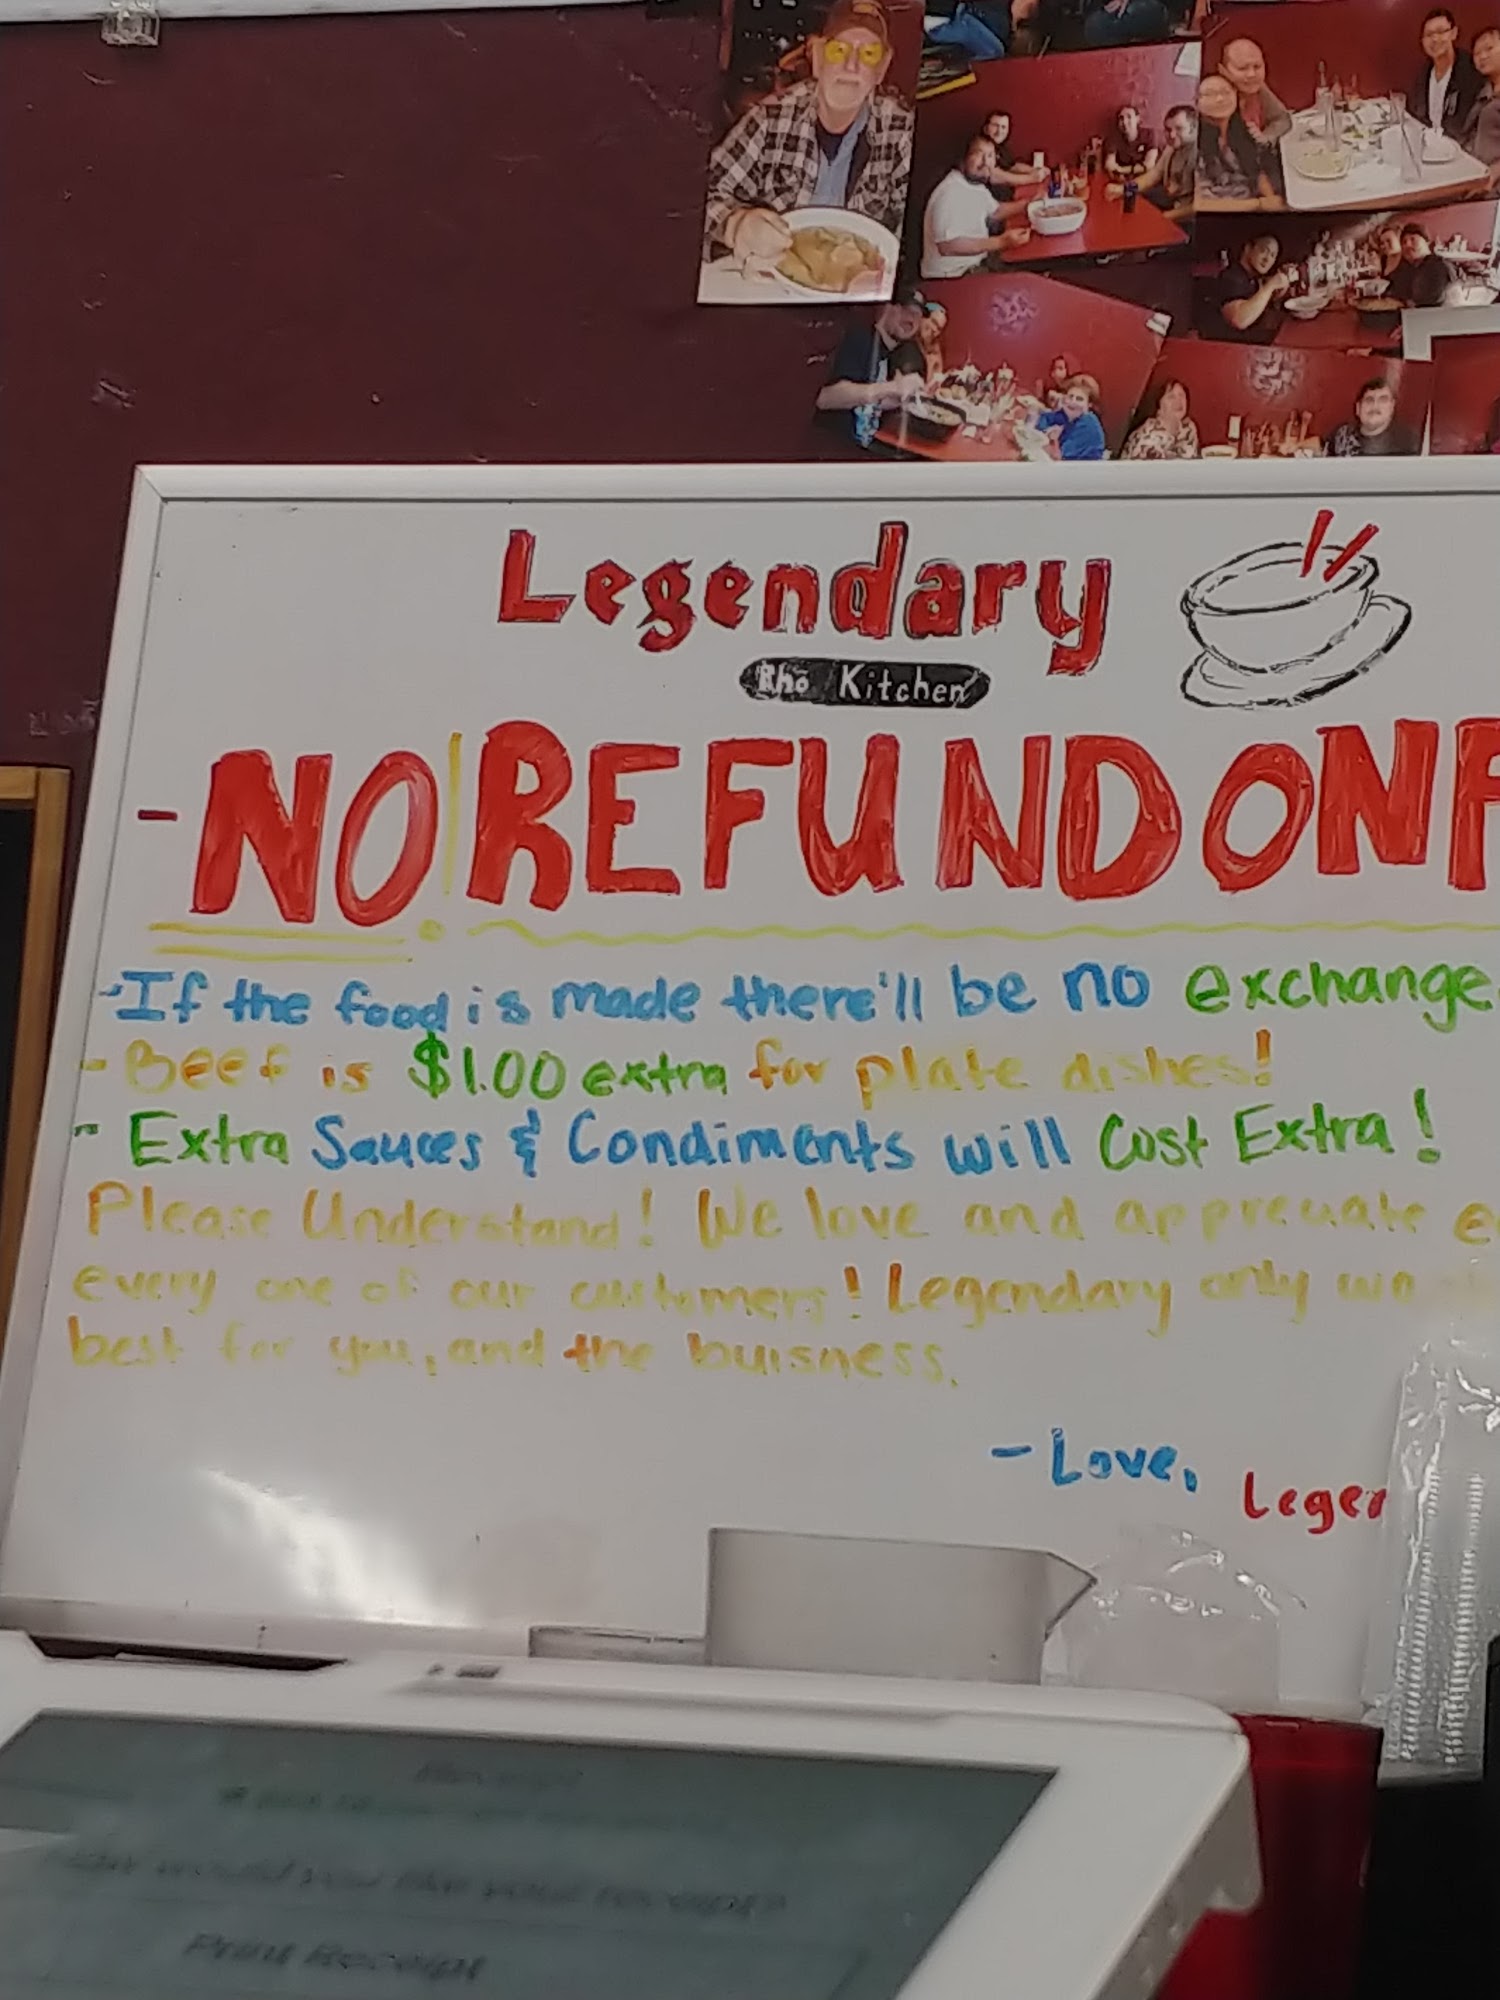 Legendary
Phō Kitchen
- NO! REFUND ON F
- If the food is made there'll be no exchange
- Beef is $1.00 extra for plate dishes!
- Extra Sauces & Condiments will Cost Extra!
Please Understand! We love and appreciate e
every one of our customers! Legendary only
best for you, and the buisness.
- Love, Legen
Print Receipt